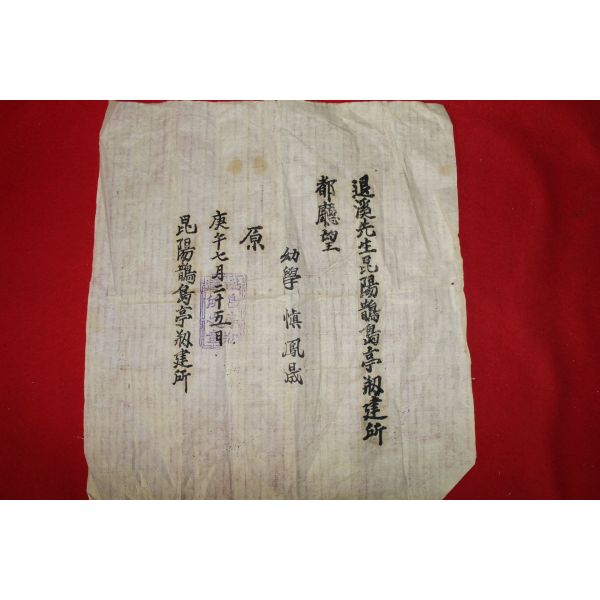 退溪先生昆陽鵲島亭刱建所
都廳望
幼學 愼鳳晟
原
庚午七月二十五日
昆陽鵲島亭刱建所